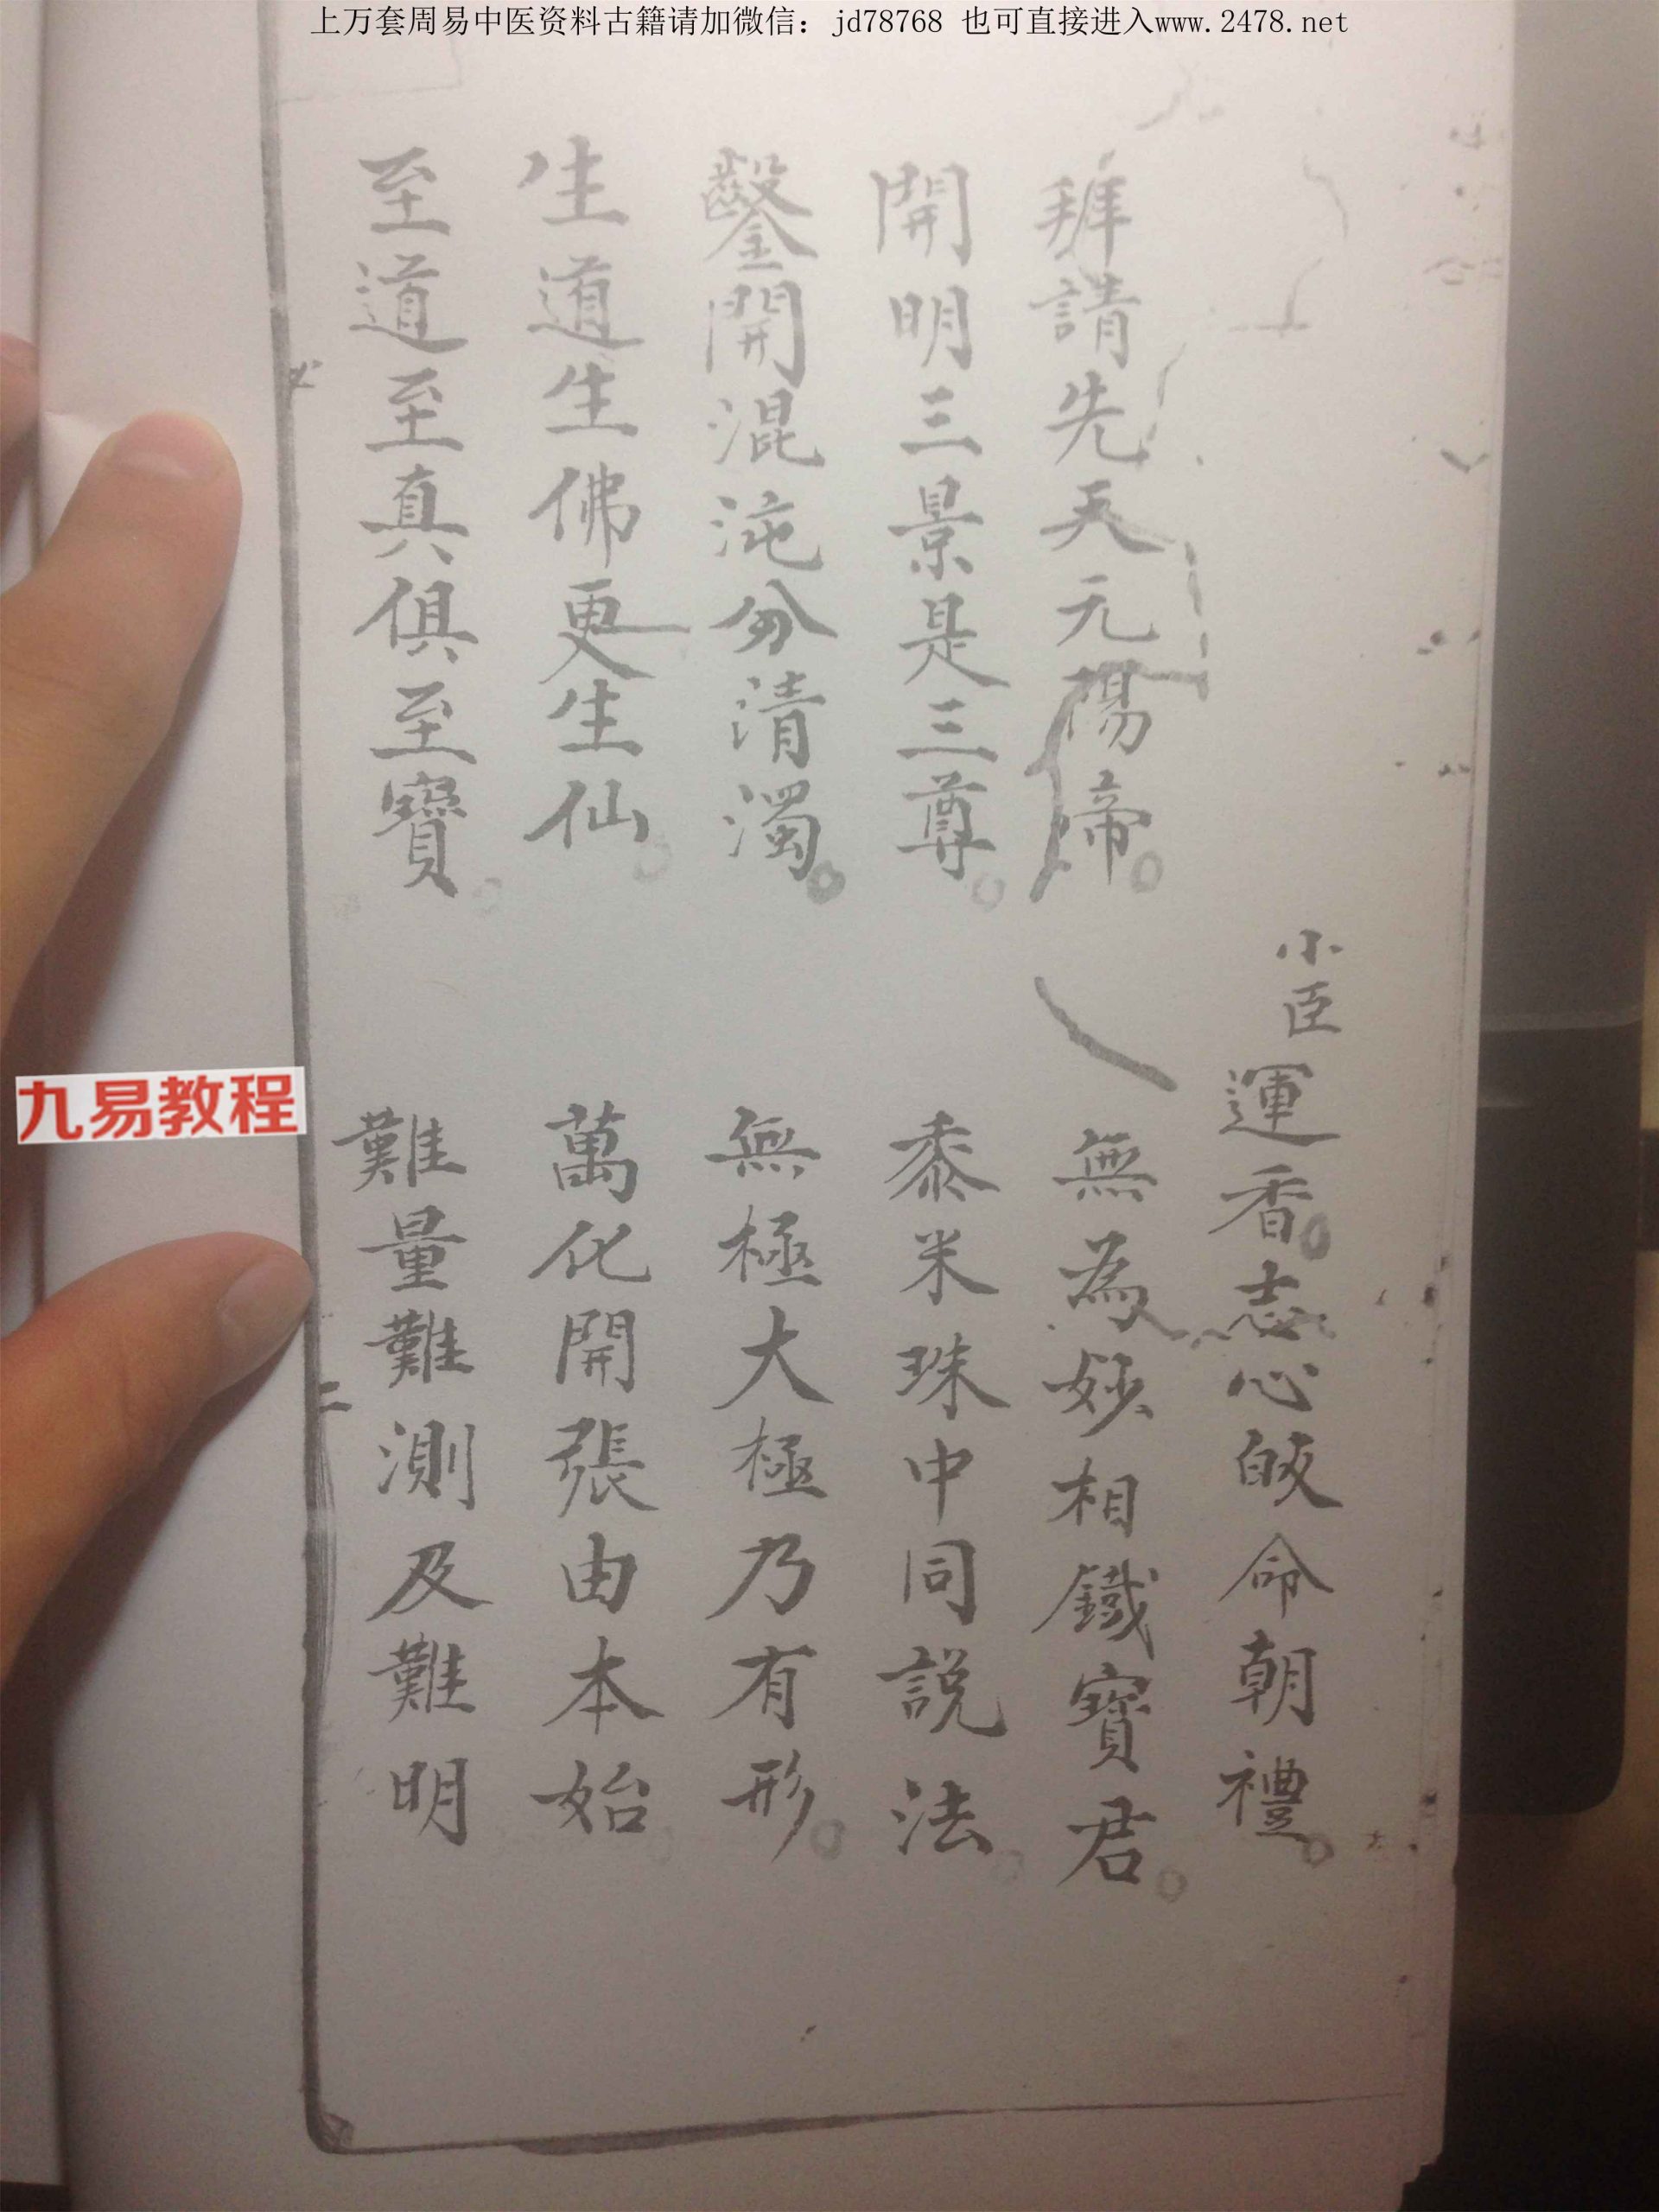 上万套周易中医资料古籍请加微信：jd78768 也可直接进入www.2478.net
小臣運香。志心皈命朝禮。
拜請先天元陽帝。 無為妙相鐵寶君。
開明三景是三尊。 黍米珠中同説法。
鑿開混沌分清濁。 無極大極乃有形。
生道生佛更生仙。 萬化開張由本始。
至道至真俱至寶。 難量難測及難明
二
九易教程